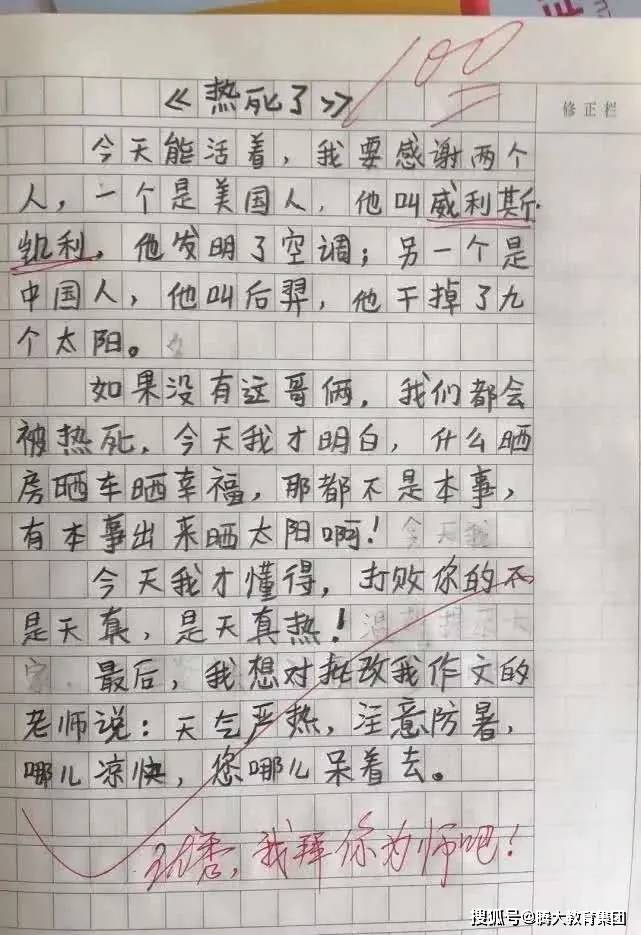 100
《热死了》
修正栏
今天能活着，我要感谢两个
人，一个是美国人，他叫威利斯·
凯利，他发明了空调；另一个是
中国人，他叫后羿，他干掉了九
个太阳。
如果没有这哥俩，我们都会
被热死，今天我才明白，什么晒
房晒车晒幸福，那都不是本事，
有本事出来晒太阳啊！
今天我才懂得，打败你的不
是天真，是天真热！
最后，我想对批改我作文的
老师说：天气严热，注意防暑，
哪儿凉快，您哪儿呆着去。
我拜你为师吧！
搜狐号@腾大教育集团